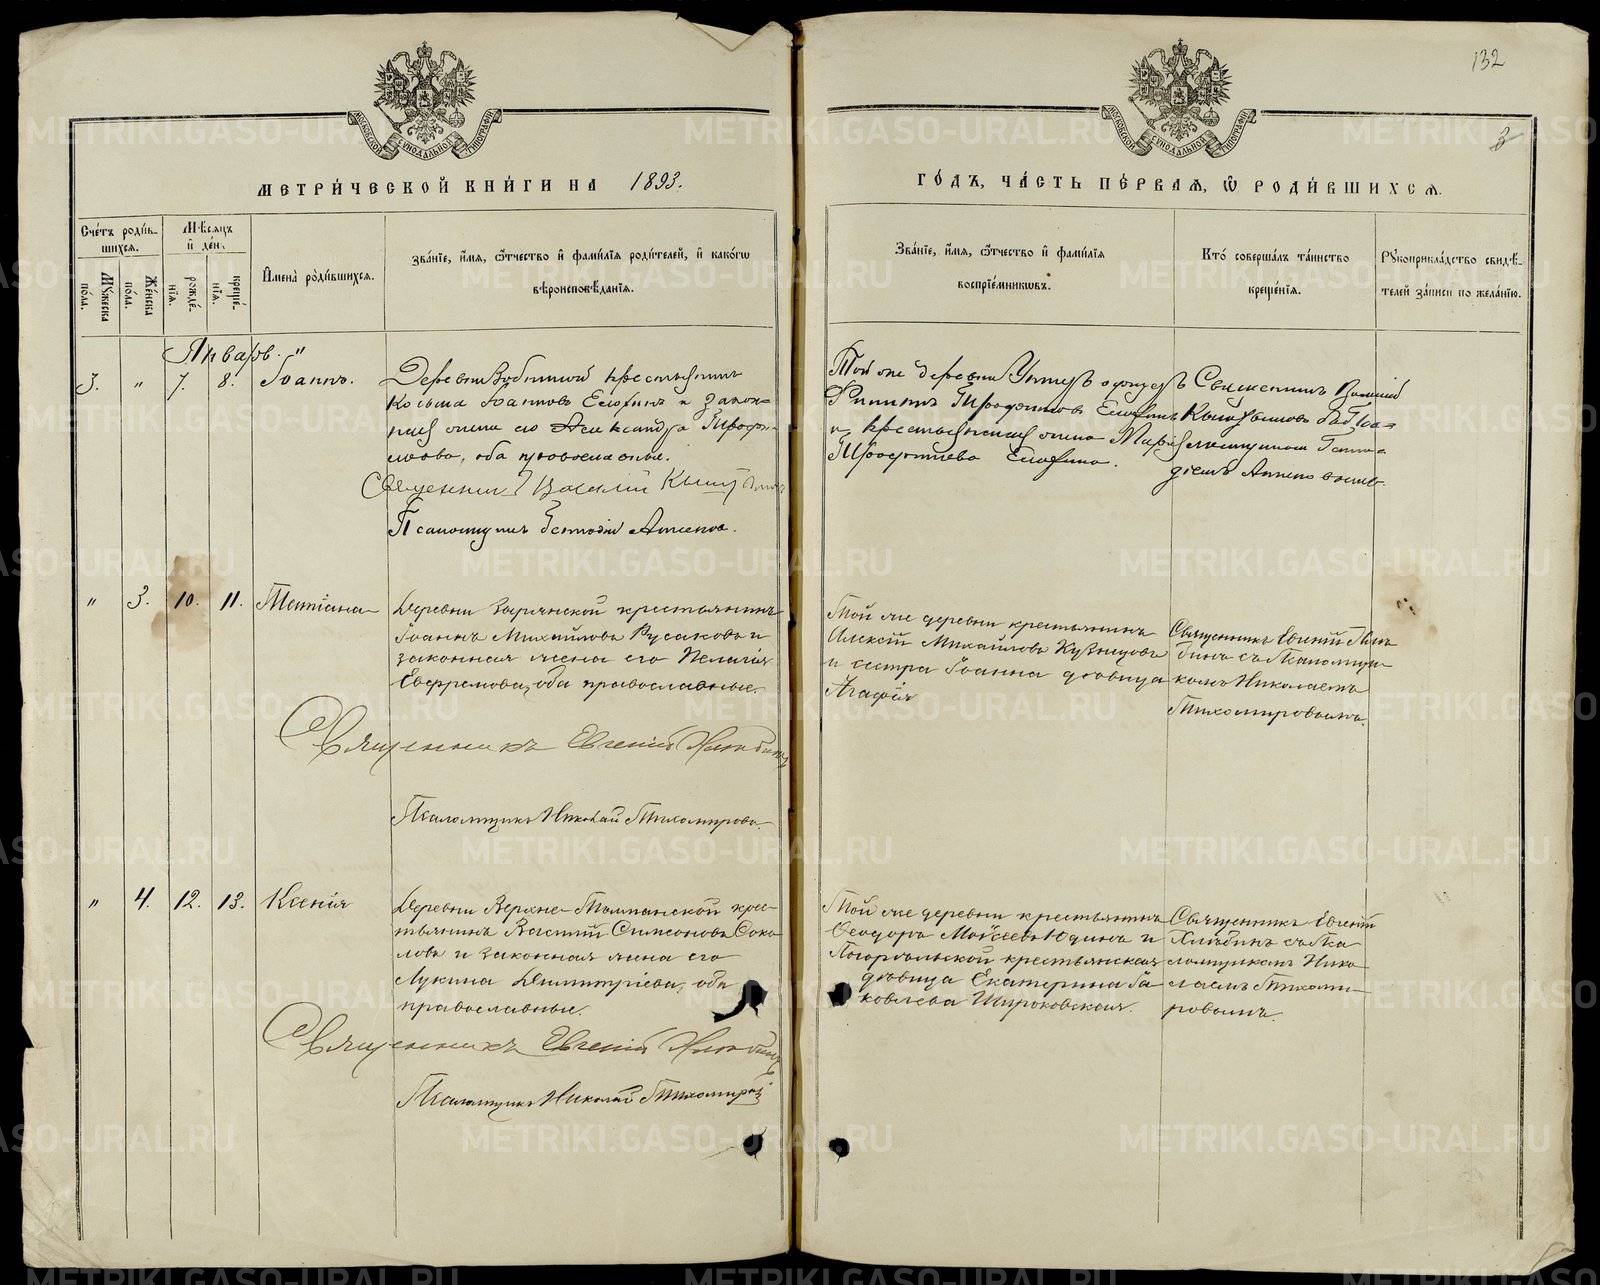 132
3
МЕТРИ́ЧЕСКОЙ КНИ́ГИ НА 1893.
ГО́ДЪ, ЧА́СТЬ ПЕ́РВАЯ, Ѿ РОДИ́ВШИХСЯ.
МОСКОВСКОЙ СѴНОДАЛЬНОЙ ТИПОГРАФІИ
МОСКОВСКОЙ СѴНОДАЛЬНОЙ ТИПОГРАФІИ
Сче́тъ роди́в-
шихся.
Му́жеска
по́ла.
Же́нска
по́ла.
Мѣ́сяцъ
и́ де́нь.
рожде́-
нія.
креще́-
нія.
И҆мена̀ роди́вшихся.
Зва́ніе, и҆́мя, ѻ҆́тчество и҆ фами́лія роди́телей, и҆ како́гѡ
вѣроисповѣ́данія.
Зва́ніе, и҆́мя, ѻ҆́тчество и҆ фами́лія
воспріе́мникѡвъ.
Кто̀ соверша́лъ та́инство
креще́нія.
Рꙋкоприкла́дство свидѣ́-
телей за́писи по жела́нію.
Январь. "
3. " 7. 8. Іоаннъ.
Деревни крестьянинъ
Косьма Іоанновъ и закон-
ная жена его Александра Трофи-
мова, оба православные.
Священник Василій
Псаломщикъ
Той же деревни
Филиппъ Трофимовъ
и крестьянская жена Марія
Священникъ Василій
" 3. 10. 11. Татіана
Деревни Зырянской крестьянинъ
Іоаннъ Михайловъ Русаковъ и
законная жена его Пелагія
Ефремова, оба православные.
Священникъ Евгеній Хлѣбинъ
Псаломщикъ Николай Тихомировъ.
Той же деревни крестьянинъ
Алексій Михайловъ Кузнецовъ
и сестра Іоанна дѣвица
Агафія
Священникъ Евгеній Хлѣ-
бинъ съ Псаломщи-
комъ Николаемъ
Тихомировымъ.
" 4. 12. 13. Ксенія
Деревни Верхне- крес-
тьянинъ Василій Симеоновъ Соко-
ловъ и законная жена его
Лукина Димитріева, оба
православные.
Священникъ Евгеній Хлѣбинъ
Псаломщикъ Николай Тихомировъ
Той же деревни крестьянинъ
Ѳеодоръ Моѵсеевъ Юдинъ и
крестьянская
дѣвица Екатерина Іа-
ковлева Широковская.
Священникъ Евгеній
Хлѣбинъ съ Пса-
ломщикомъ Нико-
лаемъ Тихоми-
ровымъ.
METRIKI.GASO-URAL.RU